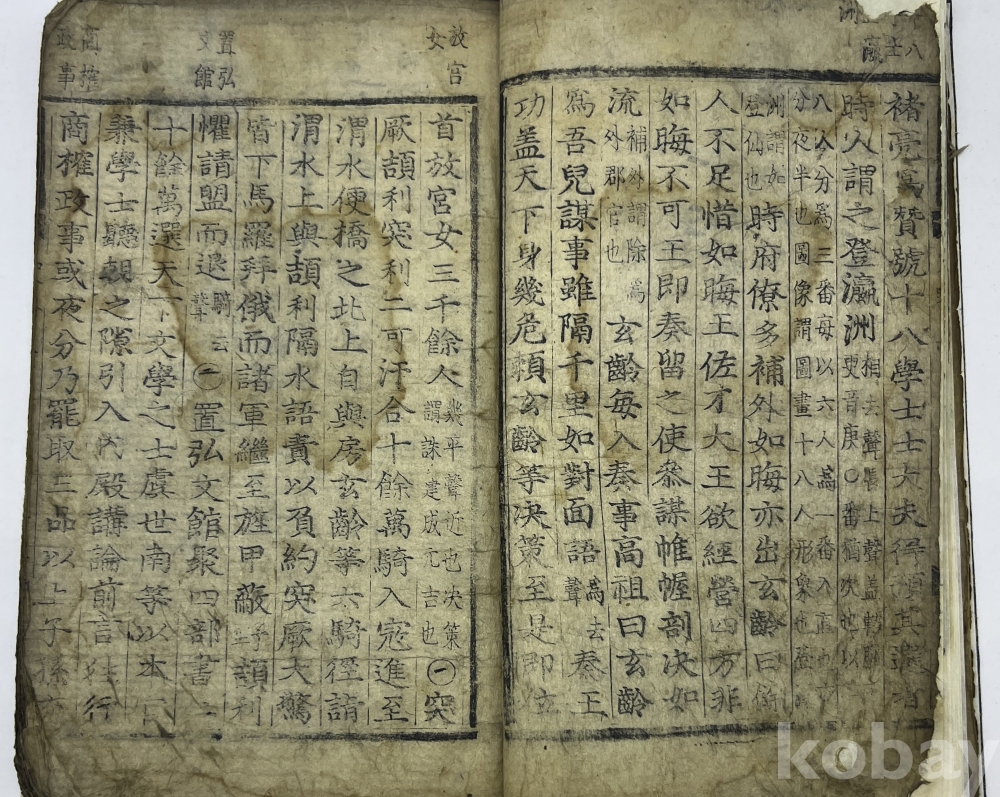 八
士
瀛
洲
褚亮寫贊號十八學士士大夫得預其選者
時人謂之登瀛洲
相去聲張上聲盖
叟音庚○番猶次也以
八人分爲三番每以六人爲一番入直
分夜半也圖像謂圖畫十八人形象也登
洲謂如
登仙也
時府僚多補外如晦亦出玄齡曰餘
人不足惜如晦王佐才大王欲經營四方非
如晦不可王即奏留之使叅謀帷幄剖決如
流
補外謂除爲
外郡官也
玄齡每入奏事高祖曰玄齡
爲吾兒謀事雖隔千里如對面語
爲去
聲
秦王
功盖天下身幾危賴玄齡等决策至是即位
放宮
女
首放宮女三千餘人
幾平聲近也决策
謂誅建成元吉也
㊀突
厥頡利突利二可汗合十餘萬騎入寇進至
渭水便橋之北上自與房玄齡等六騎徑詣
渭水上與頡利隔水語責以負約突厥大驚
皆下馬羅拜俄而諸軍繼至旌甲蔽野頡利
懼請盟而退
騎去
聲
㊀置弘文館聚四部書二
置弘
文館
十餘萬選天下文學之士虞世南等以本官
兼學士聽覲之隙引入內殿講論前言往行
商榷政事或夜分乃罷取三品以上子孫
商榷
政事
kobay